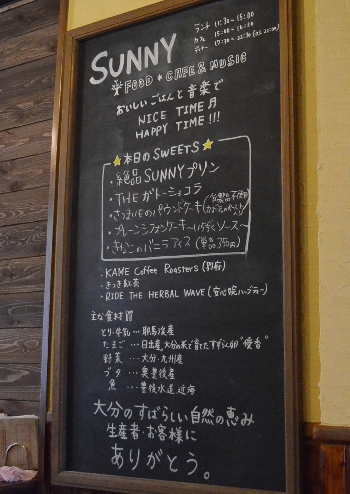 SUNNY
ランチ 11:30~15:00
カフェ 15:00~16:30
ディナー 17:30~22:30 (o.s. 22:00)
FOOD * CAFE & MUSIC
おいしいごはんと音楽で
NICE TIME
HAPPY TIME!!!
本日のSWEETS
・絶品SUNNYプリン
・THEガトーショコラ
・さつまいものパウンドケーキ
・プレーンシフォンケーキ~いちごソース~
・きなこのバニラアイス (単品350円)
・KAME Coffee Roasters (別府)
・きつき紅茶
・RIDE THE HERBAL WAVE (安心院ハーブティー)
主な食材質
とり・牛乳…耶馬溪産
たまご…日出産、大分の米で育てたすずらん卵"優香"
野菜…大分・九州産
ブタ…奥豊後産
魚…豊後水道近海
大分のすばらしい自然の恵み
生産者・お客様に
ありがとう。